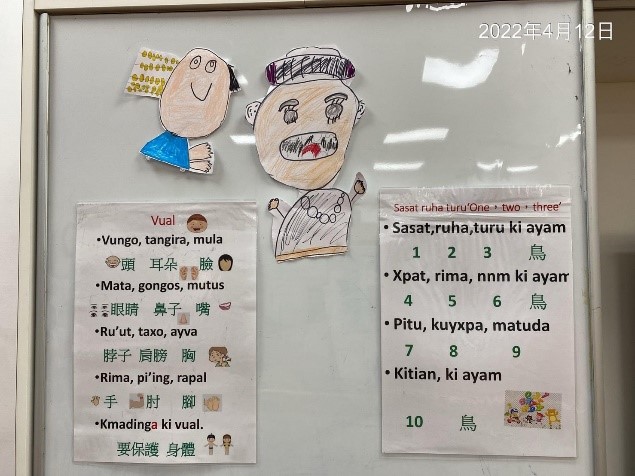 2022年4月12日
Vual
•Vungo, tangira, mula
頭 耳朵 臉
•Mata, gongos, mutus
眼睛 鼻子 嘴
•Ru'ut, taxo, ayva
脖子 肩膀 胸
•Rima, pi'ing, rapal
手 肘 腳
•Kmadinga ki vual.
要保護 身體
Sasat ruha turu'One，two，three'
• Sasat,ruha,turu ki ayam
1 2 3 鳥
• Xpat, rima, nnm ki ayam
4 5 6 鳥
• Pitu, kuyxpa, matuda
7 8 9
• Kitian, ki ayam
10 鳥